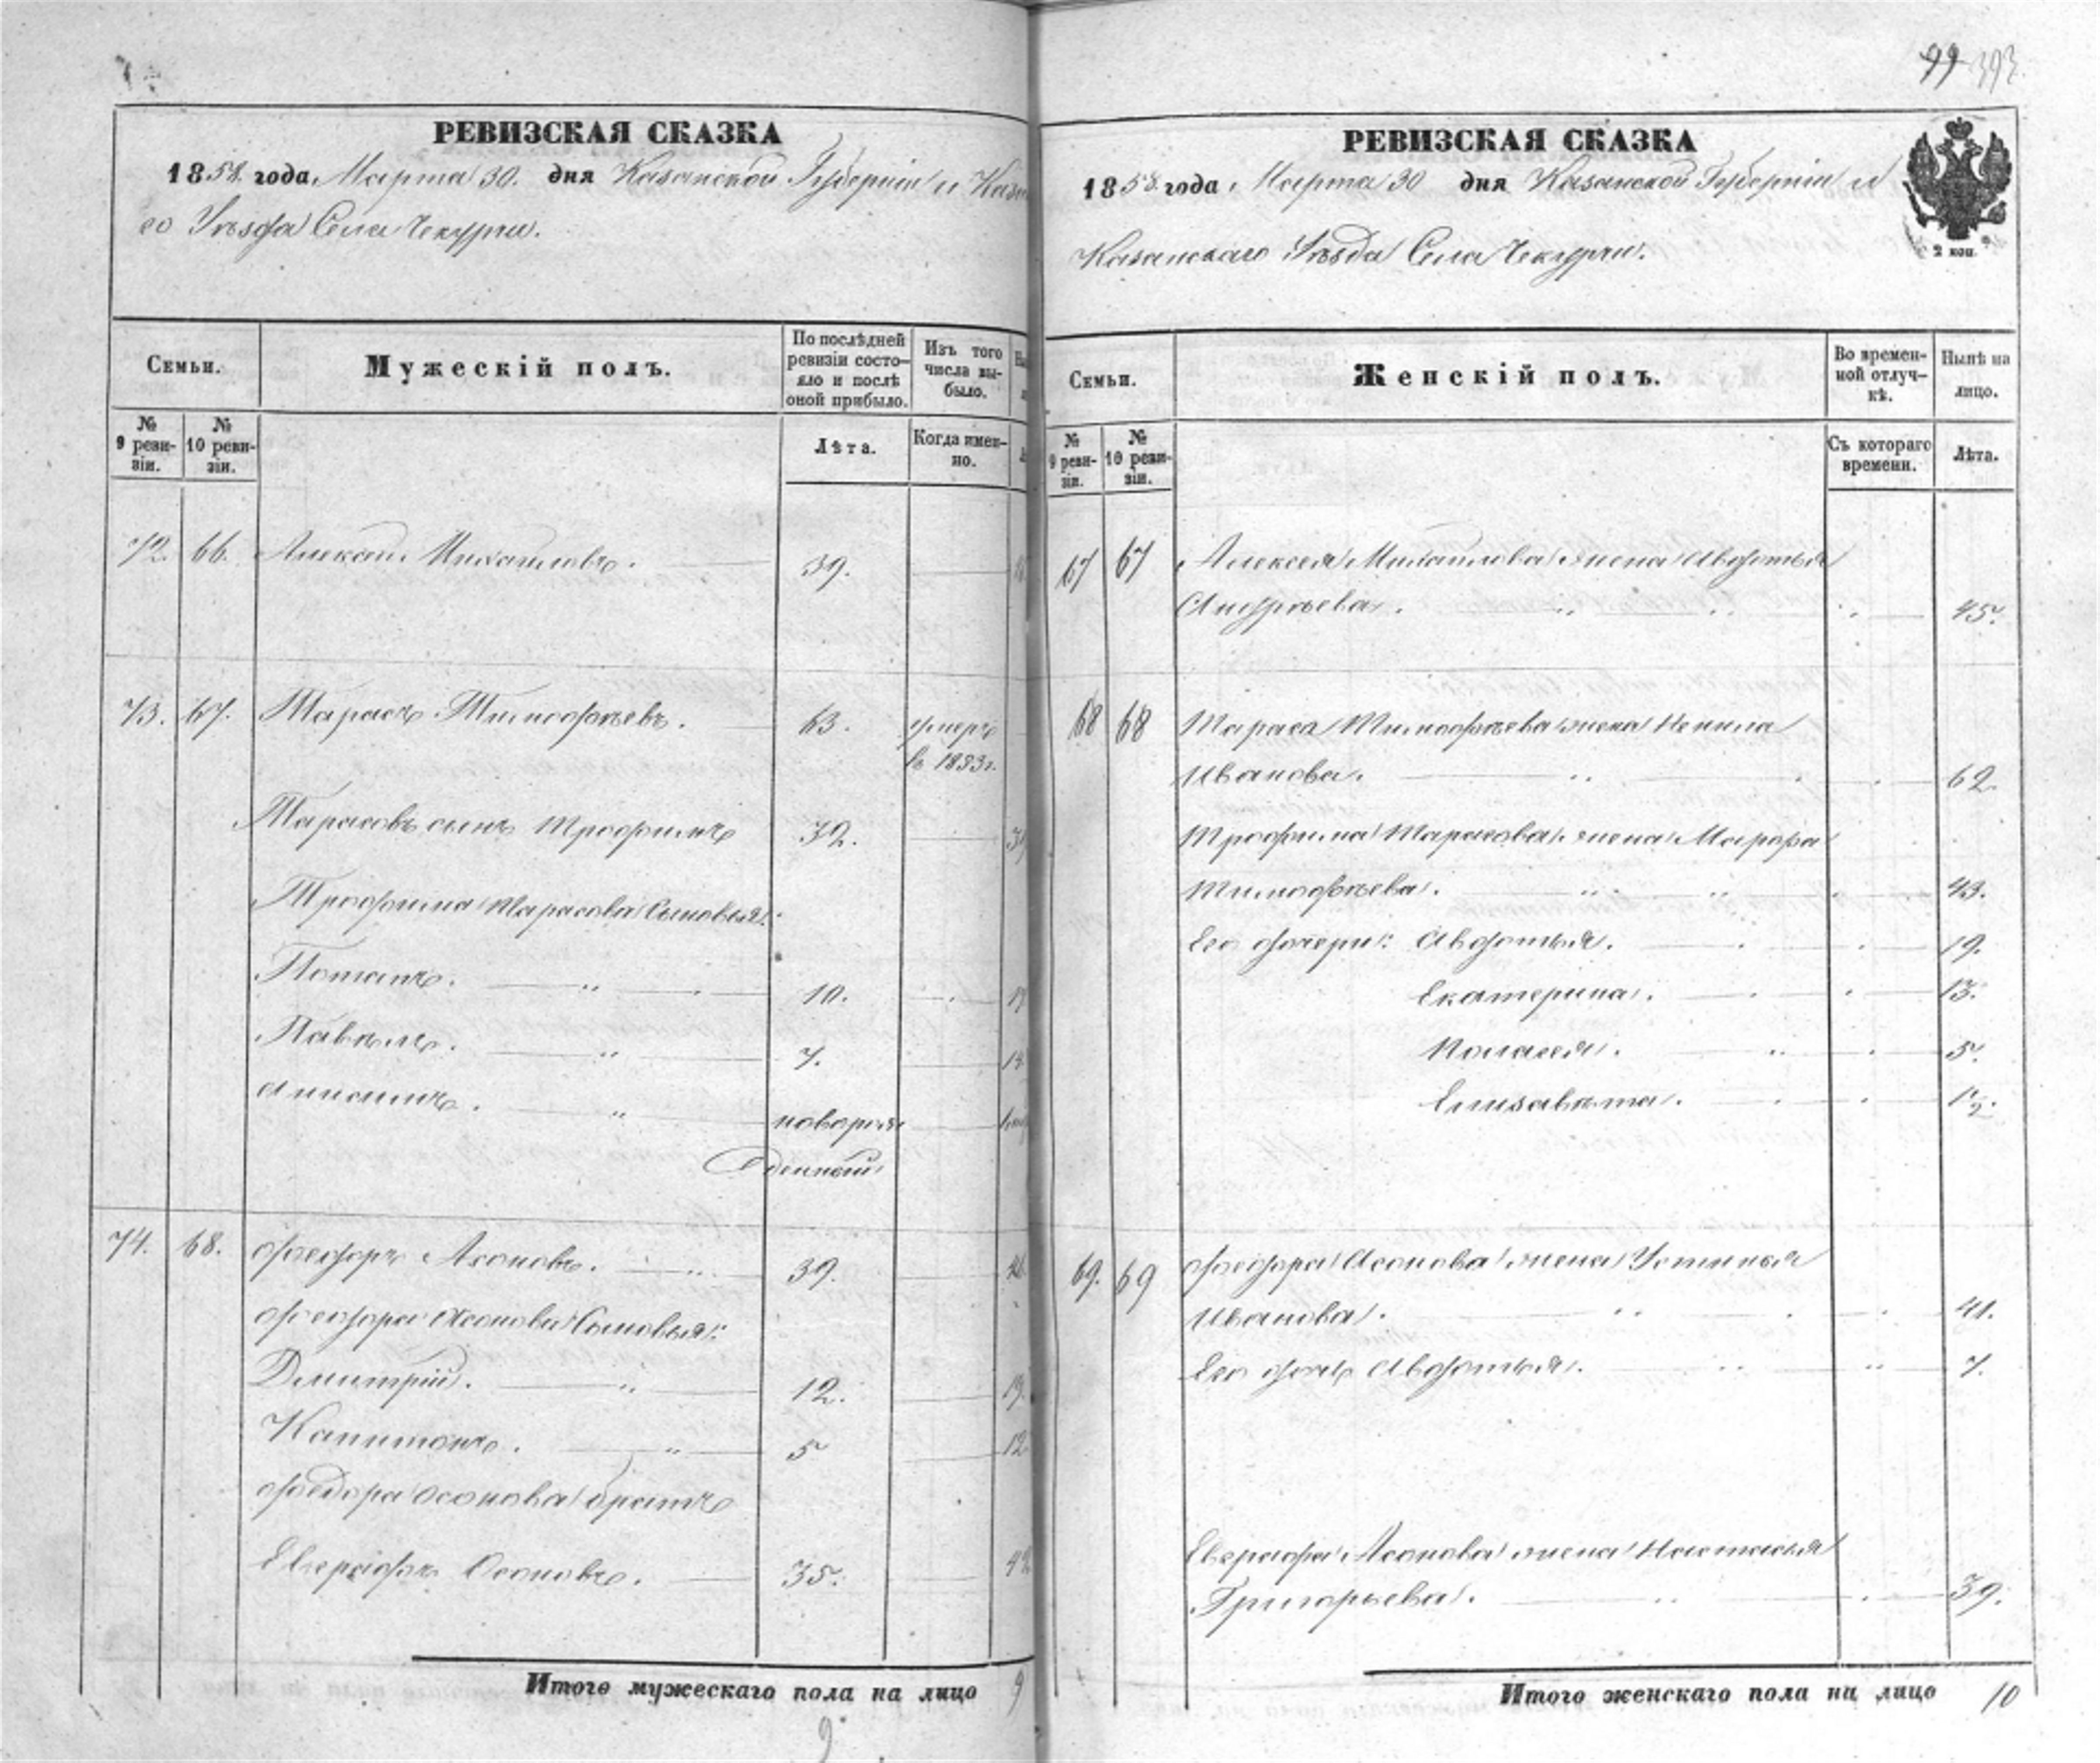 99 393
РЕВИЗСКАЯ СКАЗКА
1858. года. Марта 30. дня Казанской Губерніи и Каза
го Уѣзда Села Чекурчи.
Семьи.
Мужескій полъ.
По послѣдней ревизіи состо-
яло и послѣ
оной прибыло.
Изъ того
числа вы-
было.
№
9 реви-
зіи.
№
10 реви-
зіи.
Лѣта.
Когда имен-
но.
72. 66. Алексѣй Михайловъ. 39.
73. 67. Тарасъ Тимофѣевъ. 63. умеръ
въ 1853 г.
Тарасовъ сынъ Трофимъ 32.
Трофима Тарасова Сыновья:
Потапъ. 10.
Павелъ. 7.
Анисимъ. новорож
денный
74. 68. Федоръ Асоновъ. 39.
Федора Асонова Сыновья:
Дмитрій. 12. 19.
Капитонъ. 5 12
Федора Осонова братъ
Евграфъ Осоновъ. 35. 42
Итого мужескаго пола на лицо 9
9
РЕВИЗСКАЯ СКАЗКА
1858 года, Марта 30 дня Казанской Губерніи и
Казанскаго Уѣзда Села Чекурчи.
2 коп.
Семьи.
Женскій полъ.
Во времен-
ной отлуч-
кѣ.
Нынѣ на
лицо.
№
9 реви-
зіи.
№
10 реви-
зіи.
Съ котораго
времени.
Лѣта.
67 67 Алексея Михайлова жена Авдотья
Андрѣева. 45.
68 68 Тараса Тимофѣева жена Ненила
Иванова. 62.
Трофима Тарасова жена Марфа
Тимофѣева. 43.
Его дочери: Авдотья. 19.
Екатерина. 13.
Палагея. 5.
Елизавета. 1½.
69. 69 Федора Асонова жена Устинья
Иванова. 41.
Его дочь Авдотья. 7.
Евграфа Асонова жена Настасья
Григорьева. 39.
Итого женскаго пола на лицо 10